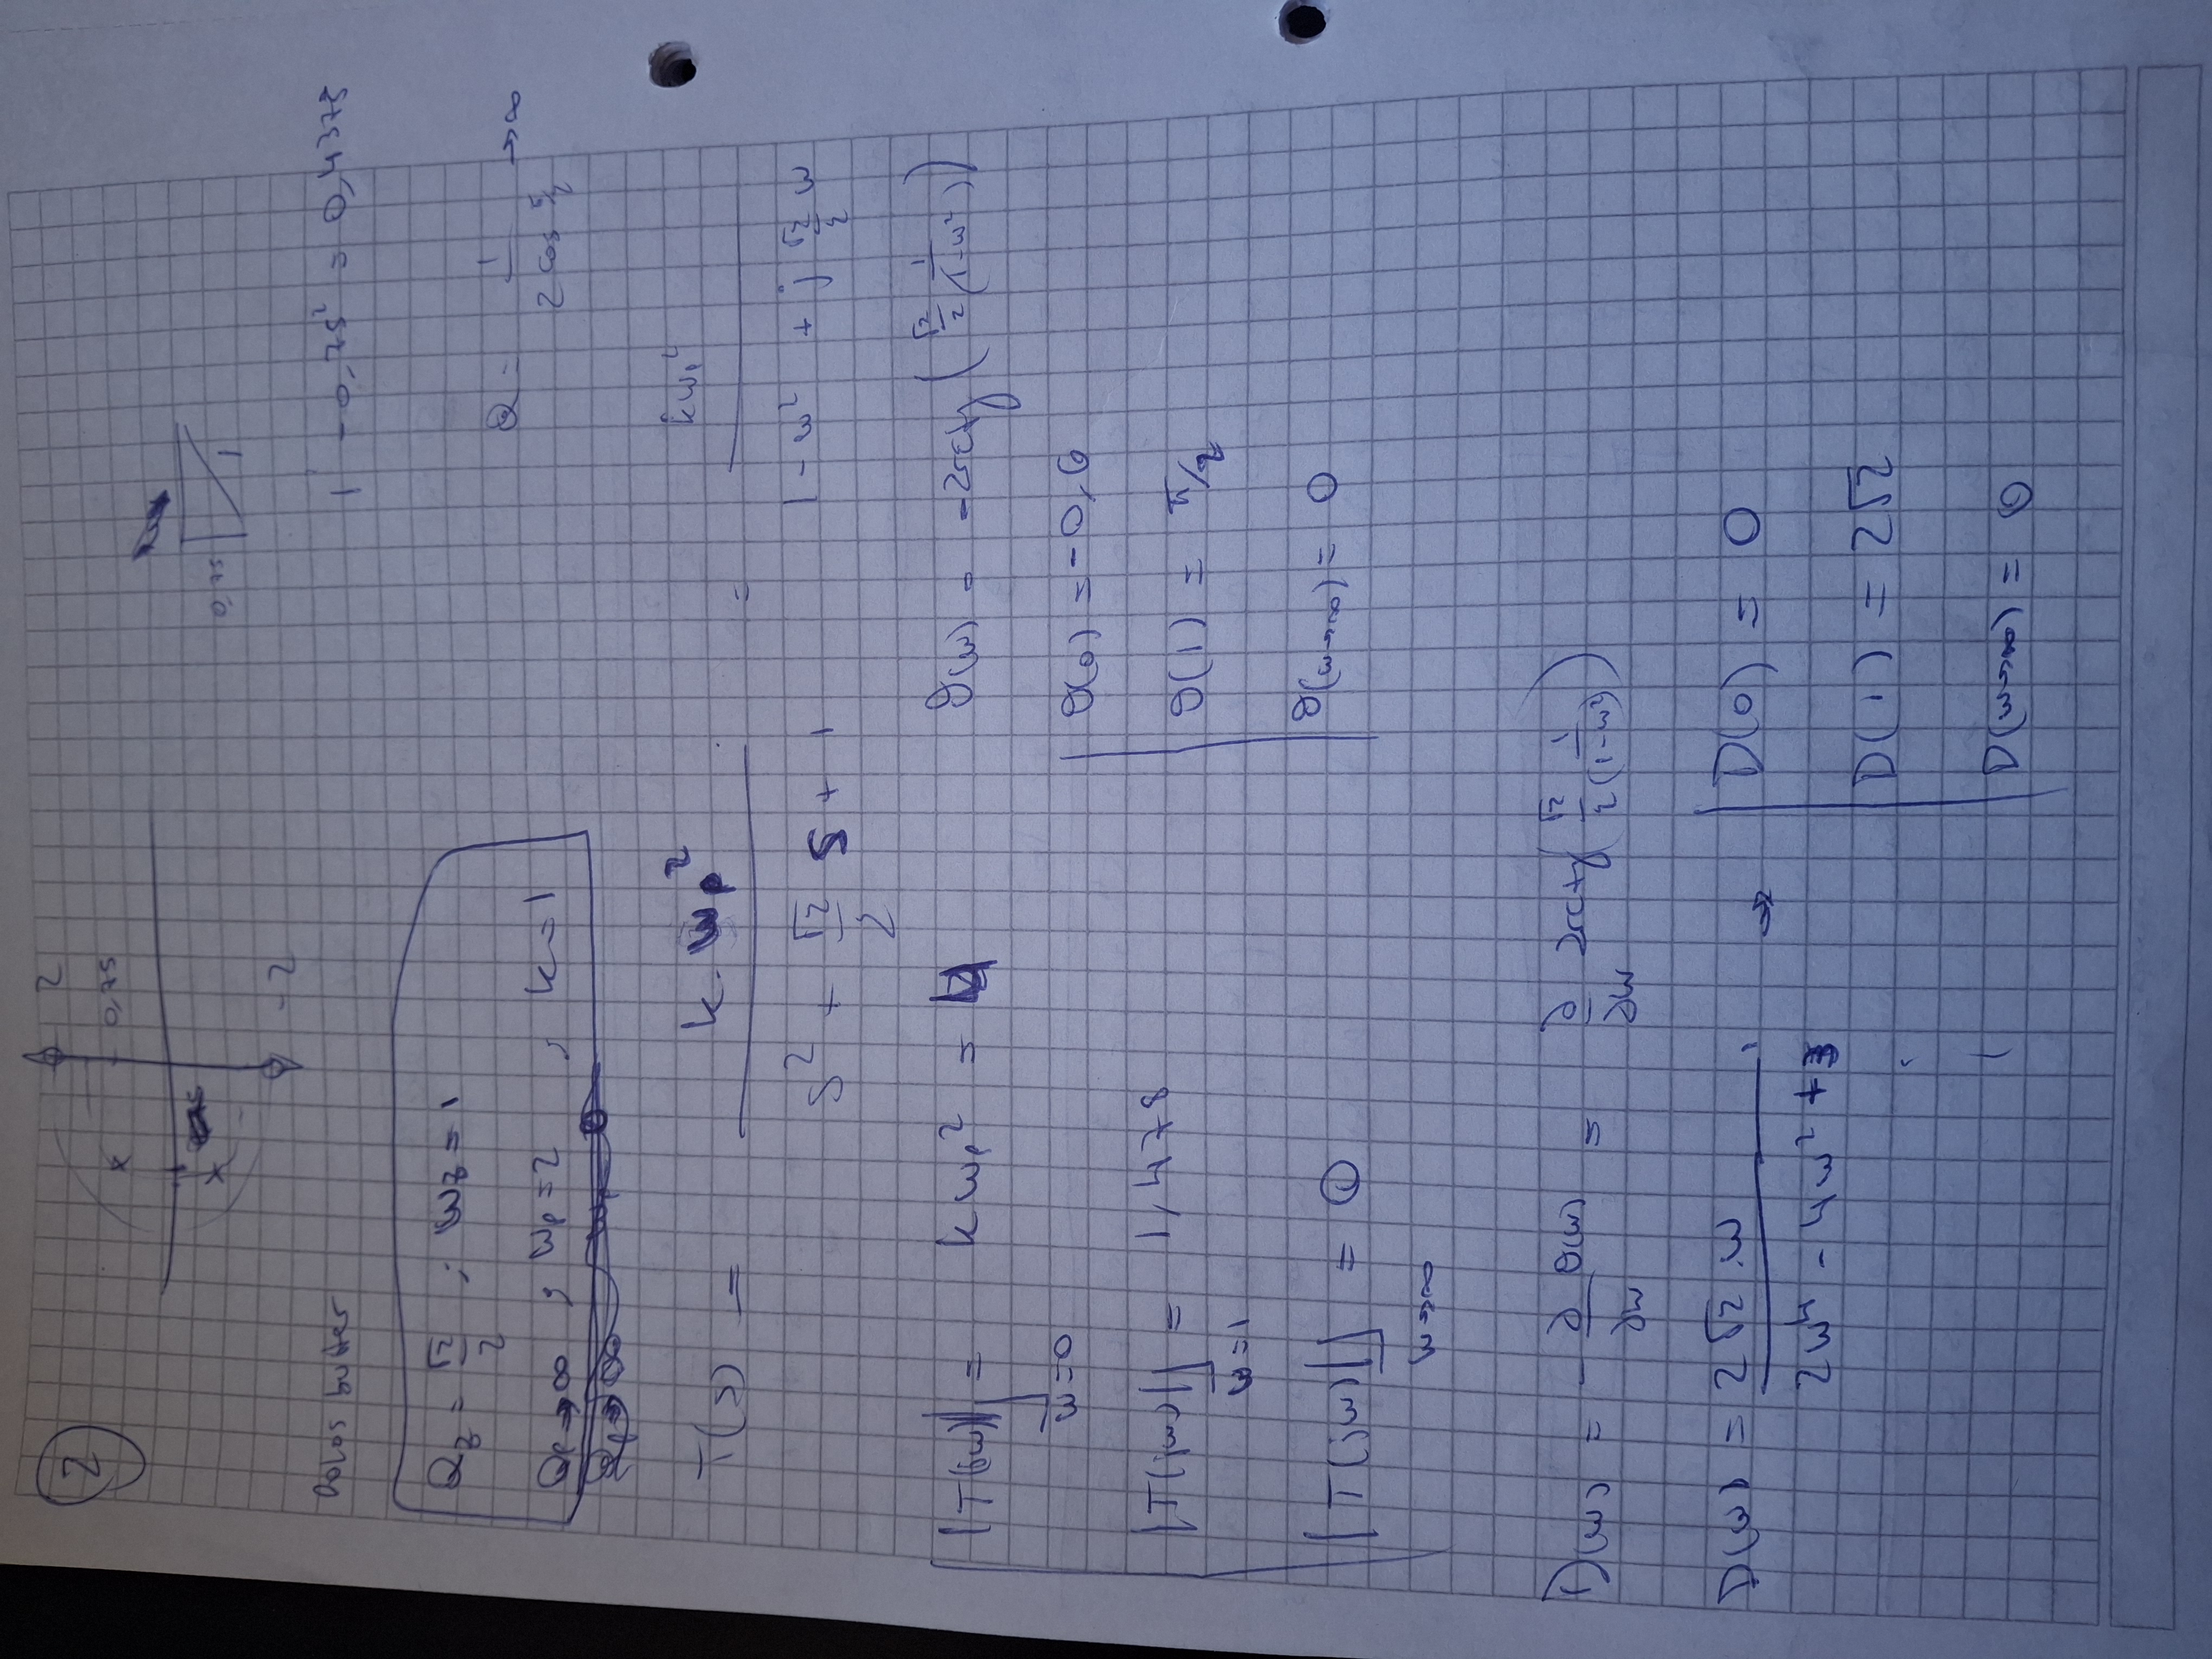 2
2
0,75
-2
0,75
1
Polos butter
1 - 0,75² = 0,4375
Q_z = √2/2 ; ω_z = 1
Q_p → ∞ ; ω_p = 2 , k = 1
Q = 1/(2 cos π/2) → ∞
T(s) = k·ω_p² / (s² + √2/2 s + 1) = kω_p² / (1 - ω² + j √2/2 ω)
|T(jω)|_ω=0 = kω_p² = 4
θ(ω) = -arctg(√2/2 1/(1-ω²))
θ(0) = -0,6
|T(jω)|_ω=1 = 1,478
θ(1) = π/2
|T(jω)|_ω→∞ = 0
θ(ω→∞) = 0
D(ω) = -∂θ(ω)/∂ω = ∂/∂ω arctg(√2/2 1/(1-ω²))
D(ω) = 2√2·ω / (2ω⁴ - 4ω² + 3) →
D(0) = 0
D(1) = 2√2
D(ω→∞) = 0